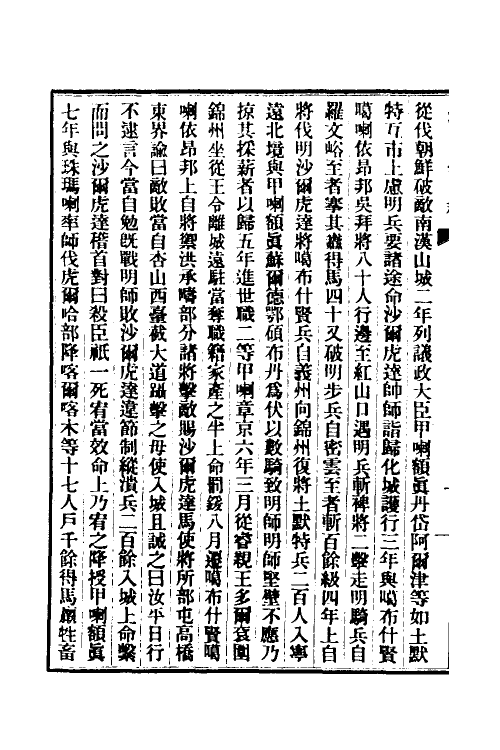 從伐朝鮮破敵南漢山城二年列議政大臣甲喇額眞丹岱阿爾津等如土默
特互市上慮明兵要諸途命沙爾虎達帥師詣歸化城護行三年與噶布什賢
噶喇依昂邦吳拜將八十人行邊至紅山口遇明兵斬裨將二擊走明騎兵自
羅文峪至者搴其纛得馬四十又破明步兵自密雲至者斬百餘級四年上自
將伐明沙爾虎達將噶布什賢兵自義州向錦州復將土默特兵二百人入寧
遠北境與甲喇額眞蘇爾德鄂碩布丹爲伏以數騎致明師明師堅壁不應乃
掠其採薪者以歸五年進世職二等甲喇章京六年三月從睿親王多爾袞圍
錦州坐從王令離城遠駐當奪職籍家產之半上命罰鍰八月遷噶布什賢噶
喇依昂邦上自將禦洪承疇部分諸將擊敵賜沙爾虎達馬使將所部屯高橋
東界諭曰敵敗當自杏山西臺截大道躡擊之毋使入城且誡之曰汝平日行
不逮言今當自勉旣戰明師敗沙爾虎達違節制縱潰兵二百餘入城上命繫
而問之沙爾虎達稽首對曰殺臣祇一死宥當效命上乃宥之降授甲喇額眞
七年與珠瑪喇率師伐虎爾哈部降喀爾喀木等十七人戶千餘得馬驘牲畜